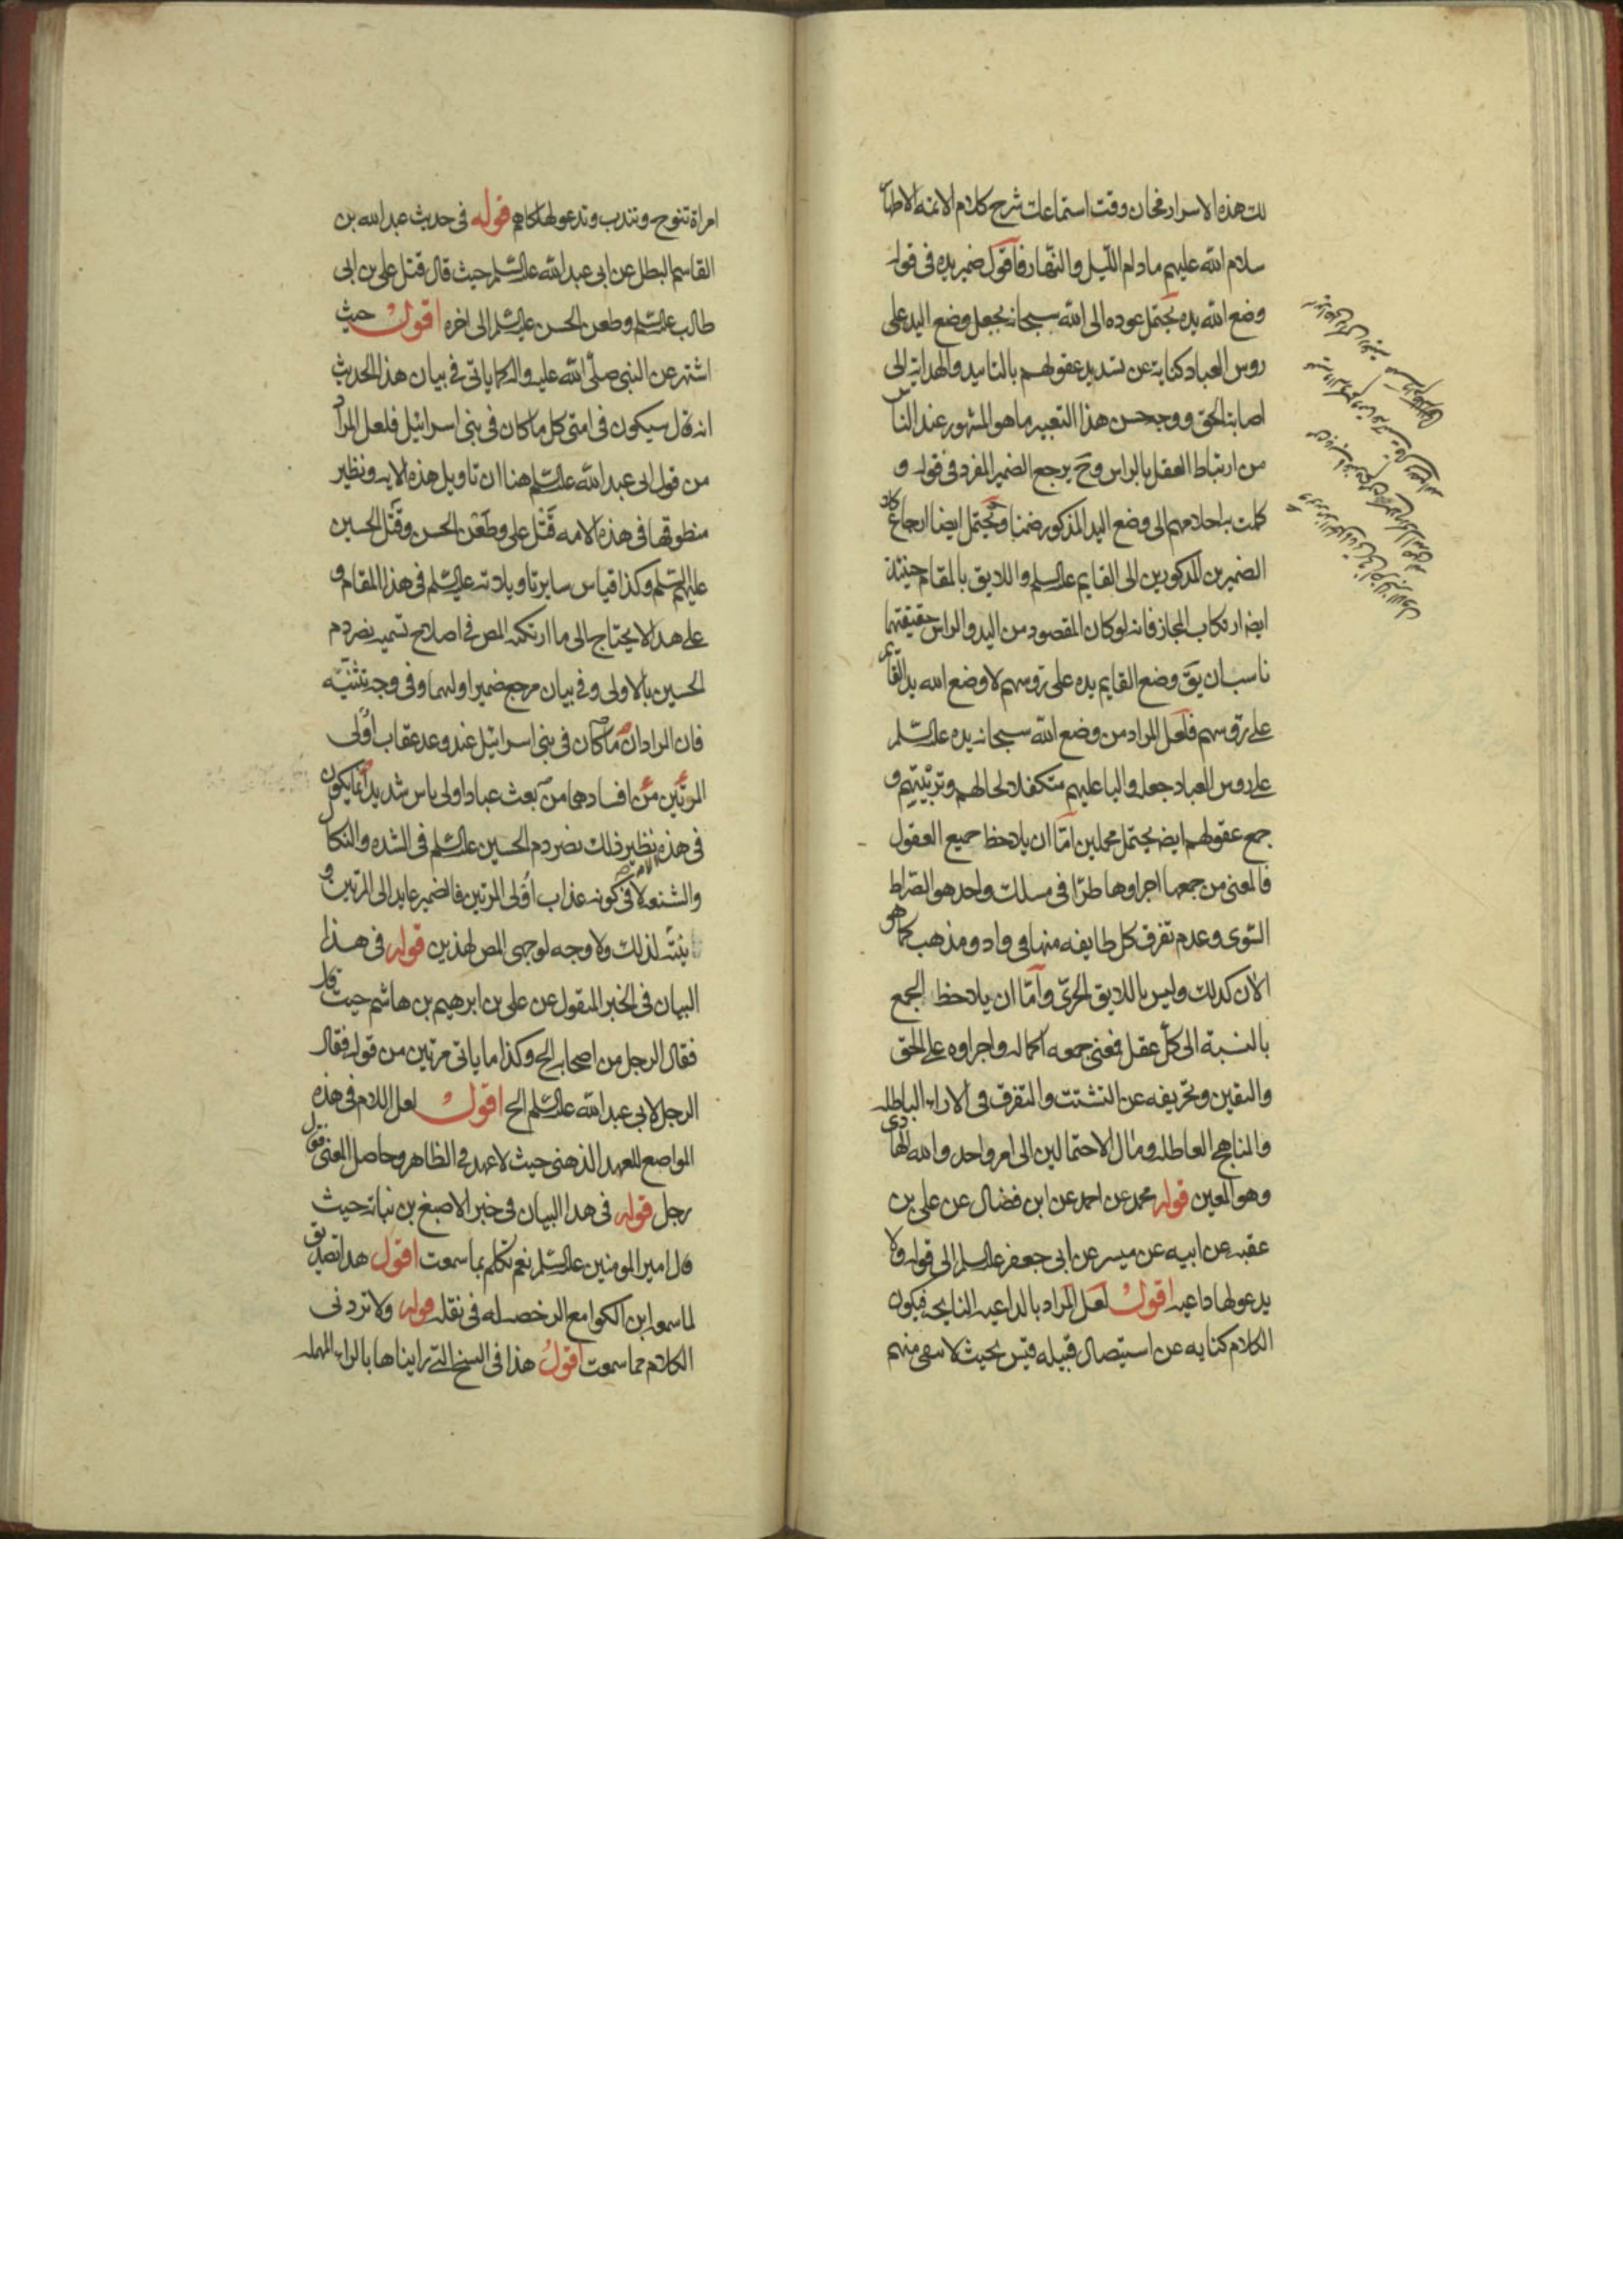 لك هذه الاسرار فحان وقت استماعك شرح كلام الائمة الاطيا
سلام الله عليهم مادام الليل والنهار فاقول ضمير يده في قوله
وضع الله يده يحتمل عوده الى الله سبحانه بجعل وضع اليد على
روس العباد كناية عن تسديد عقولهم بالتاييد والهداية الى
اصابة الحق ووجه حسن هذا التعبير ما هو المشهور عند النا
من ارتباط العقل بالراس وح يرجع الضمير المفرد في قوله و
كملت به احلامهم الى وضع اليد المذكور ضمنا ويحتمل ايضا ارجاع كلا
الضميرين المذكورين الى القايم عليه السلم واللايق بالمقام حينئذ
ايضا ارتكاب المجاز فانه لو كان المقصود من اليد والراس حقيقتهما
ناسب ان يق وضع القايم يده على رؤسهم لا وضع الله يد القايم
على رؤسهم فلعل المراد من وضع الله سبحانه يده عليه السلم
على روس العباد جعله واليا عليهم متكفلا لحالهم وتربيتهم و
جمع عقولهم ايضا يحتمل محملين اما ان يلاحظ جميع العقول
فالمعنى من جمعها اجراوها طرا في مسلك واحد هو الصراط
السوى وعدم تفرق كل طايفه منها في واد ومذهب كما هو
الان كذلك وليس باللايق الحرى واما ان يلاحظ الجمع
بالنسبة الى كل عقل فمعنى جمعه اكماله واجراوه على الحق
واليقين وتحريفه عن التشتت والتفرق في الاراء الباطله
والمناهج العاطله ومال الاحتمالين الى امر واحد والله الهادى
وهو المعين قوله محمد عن احمد عن ابن فضال عن على بن
عقبه عن ابيه عن ميسر عن ابى جعفر عليه السلم الى قوله ولا
يدعو لها داعيه اقول لعل المراد بالداعيه النايحه فيكون
الكلام كنايه عن استيصال قبيله قيس بحيث لا يبقى منهم
امراة تنوح وتندب وتدعو لهلاكهم قوله في حديث عبد الله بن
القاسم البطل عن ابى عبد الله عليه السلم حيث قال قتل على بن ابى
طالب عليه السلم وطعن الحسن عليه السلم الى اخره اقول حيث
اشتهر عن النبى صلى الله عليه واله كما ياتى في بيان هذا الحديث
انه قال سيكون في امتى كل ما كان في بنى اسرائيل فلعل المراد
من قول ابى عبد الله عليه السلم هنا ان تاويل هذه الايه ونظير
منطوقها في هذه الامه قتل على وطعن الحسن وقتل الحسين
عليهم السلم وكذا قياس ساير تاويلاته عليه السلم في هذا المقام و
على هذا لا يحتاج الى ما ارتكبه المص في اصلاح تسميه نصر دم
الحسين بالاولى وفي بيان مرجع ضمير اولهما وفي وجه تثنيته
فان المراد ان ما كان في بنى اسرائيل عند وعد عقاب اولى
المرتين من افسادهما من بعث عباد اولى باس شديد انما يكون
في هذه نظير ذلك نصر دم الحسين عليه السلم في الشده والنكال
والشنعه لا في كونه عذاب اولى المرتين فالضمير عايد الى المرتين و
تثنيته لذلك ولا وجه لوجهى المص لهذين قوله في هذا
البيان في الخبر المنقول عن على بن ابرهيم بن هاشم حيث قال
فقال الرجل من اصحابه الخ وكذا ما ياتى مرتين من قوله فقال
الرجل لابى عبد الله عليه السلم الخ اقول لعل اللام في هذه
المواضع للعهد الذهنى حيث لا عهد في الظاهر وحاصل المعنى فقال
رجل قوله في هذا البيان في خبر الاصبغ بن نباته حيث
قال امير المومنين عليه السلم نعم تكلم بما سمعت اقول هذا تصديق
لما سمع ابن الكوا مع الرخصه له في نقله قوله ولا تزد في
الكلام مما سمعت اقول هذا في النسخ التى رايناها بالراء المهمله